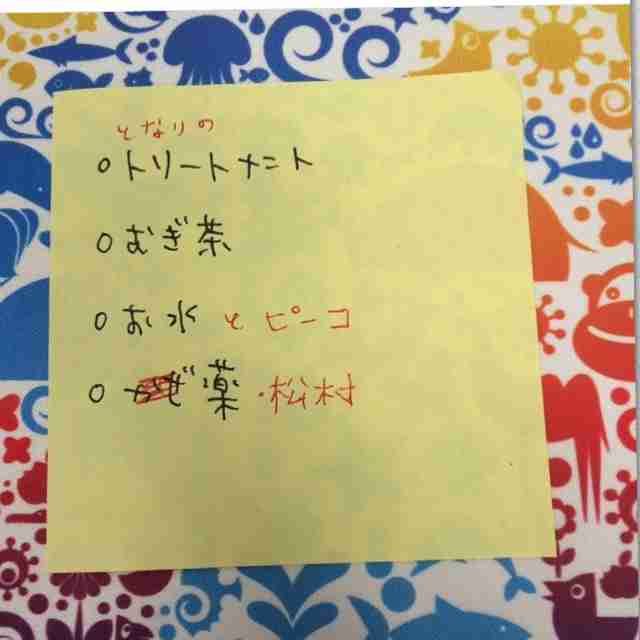 となりの
○トリートメント
○むぎ茶
○お水 と ピーコ
○ 薬・松村